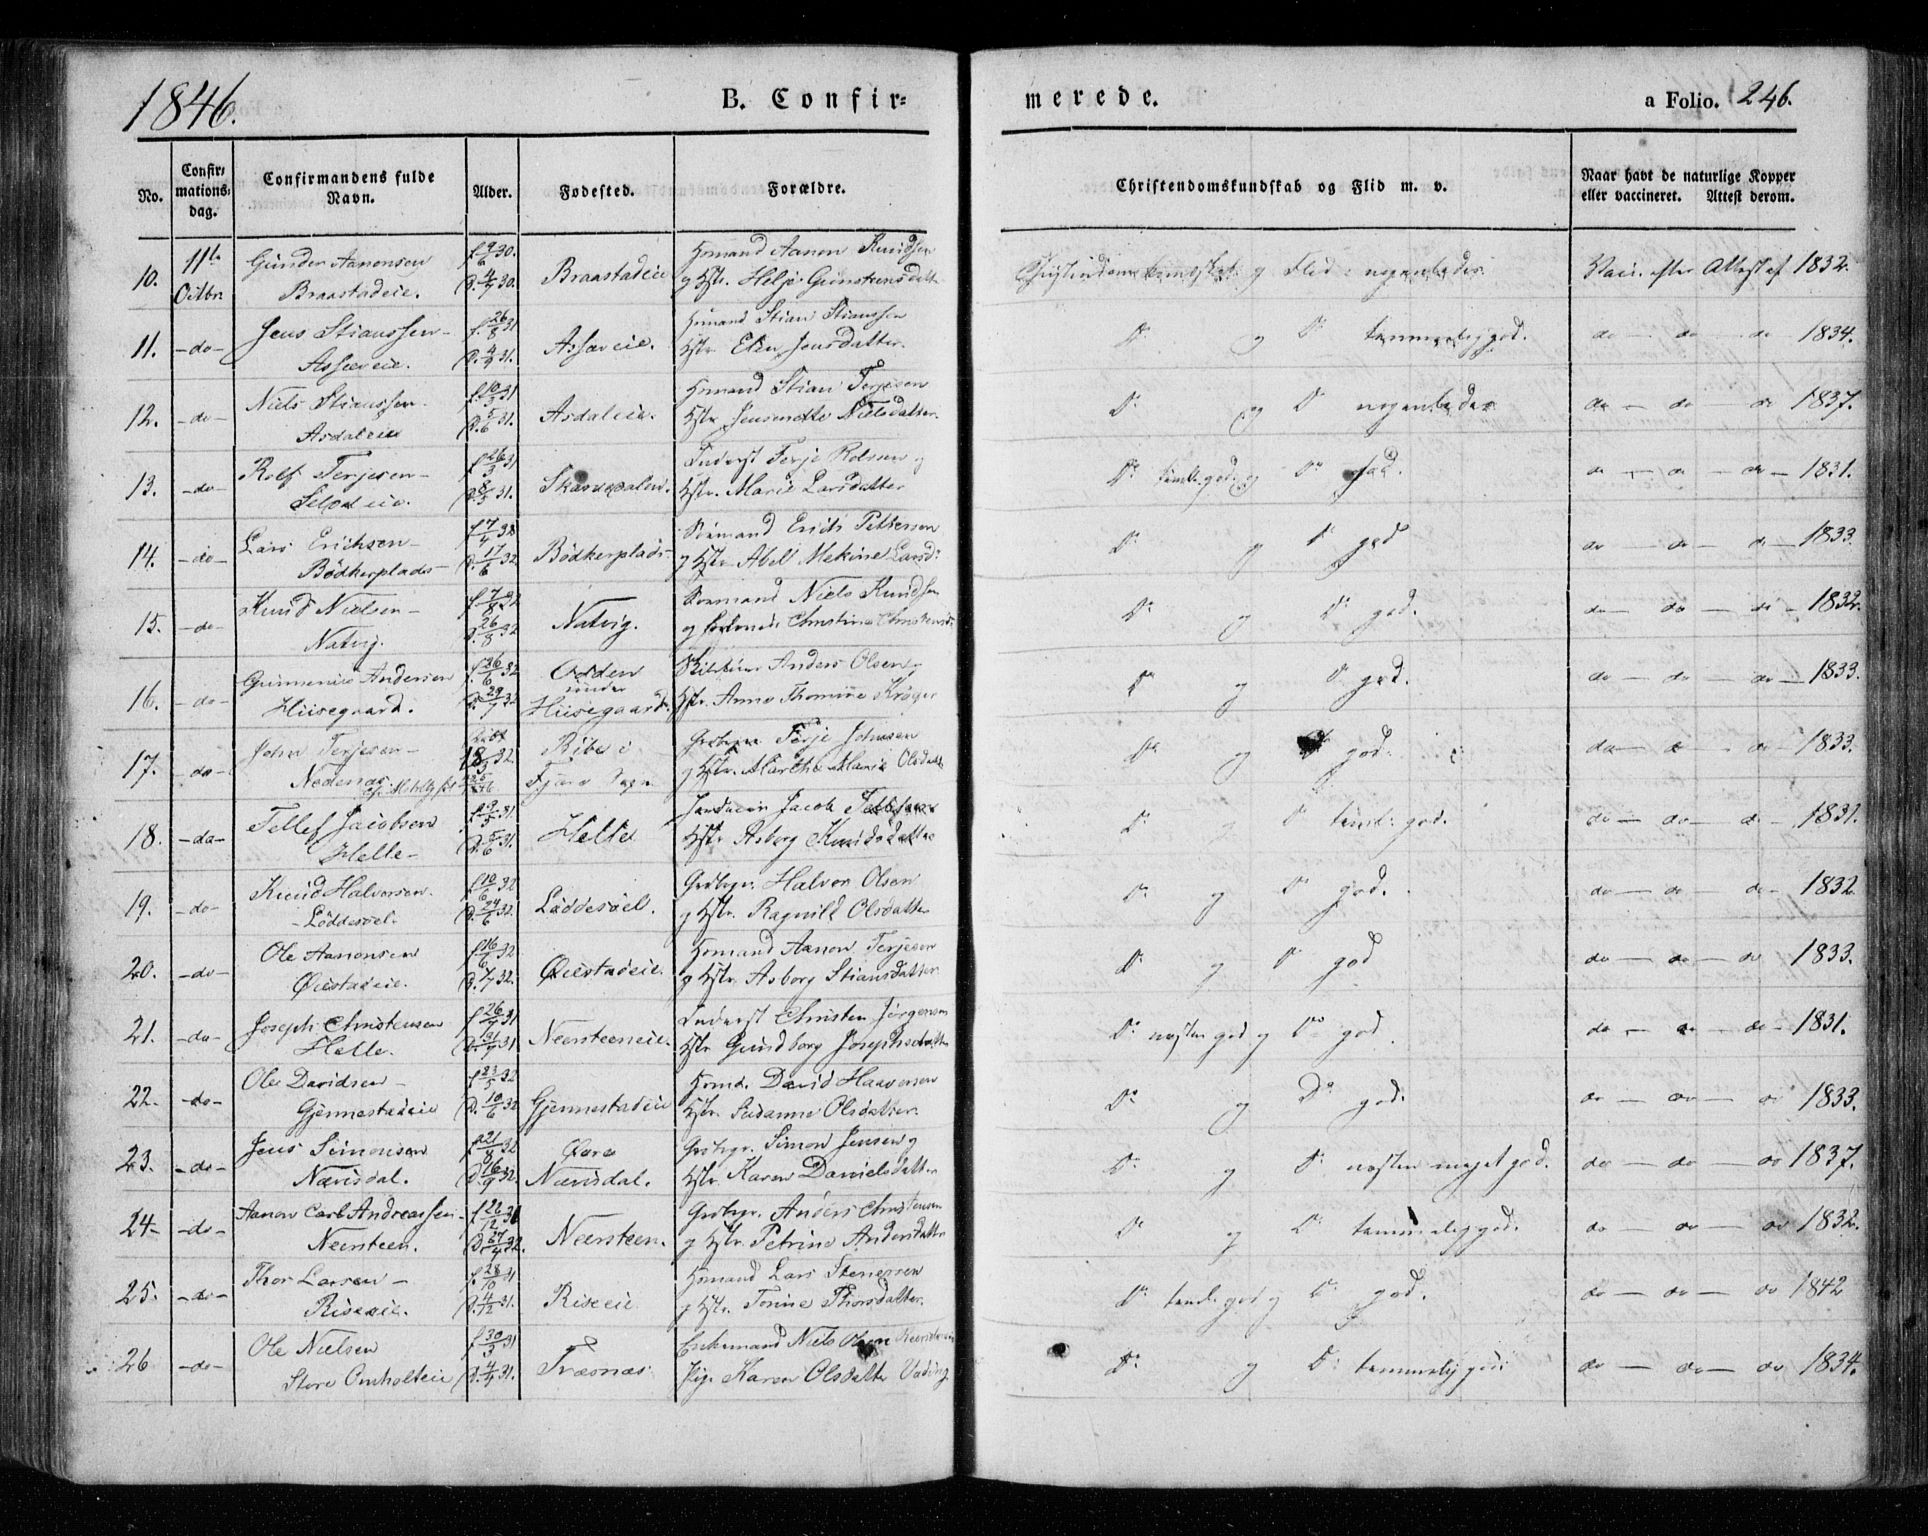 1846.
B. Confir=
merede.
a Folio. 246.
No.
Confir=
mations=
dag.
Confirmandens fulde
Navn.
Alder.
Fødested.
Forældre.
Christendomskundskab og Flid m. v.
Naar havt de naturlige Kopper
eller vaccineret. Attest derom.
10.
11te
Octbr
Gunder Aanonsen
Braastadeie.
f. 9/6 30.
D. 4/7 30.
Braastadeie
Huusmand Aanon Knudsen
og Hstr. Helje Gunstensdatter
Christendomskundskab og Flid: nogenledes
Vacc. efter Attest af 1832.
11. -do-
Jens Stianssen-
Assæveie.
f. 26/8 31
D. 4/9 31.
Assæveie.
Stian Stianssen
Hstr. Elen Jensdatter.
Do og Do temmelig god.
do - do - do - 1834.
12. -do-
Niels Stianssen-
Asdaleie
f. 10/3 31
D. 5/6 31.
Asdaleie.
Stian Terjesen
Hstr. Jensmette Nielsdatter.
Do og Do nogenledes
do - do - do 1837.
13. -do-
Rolf Terjesen-
f. 26/3 31
31.
Inderst Terje Rolsen og
Hstr. Marie Larsdatter
Do temlig god og Do god.
do - do - do - 1831.
14. -do-
Lars Erichsen-
Bödkerplads-
f. 7/4 32
D. 17/6 32
Bödkerplads-
Sømand Erich Pettersen
og Hstr. Abel Mekine Larsd:
Do og Do god
do - do - do - 1833.
15. -do-
Knud Nielsen-
Natvig.
f. 7/8 32
D. 26/8 32
Natvig.
Sømand Niels Knudsen
og Christine
Do og Do god.
do - do - do - 1832.
16. -do-
Andersen
Hiisegaard.
f. 26/6 32
D. 29/7 32
Odden
under
Hiisegaard.
Anders Olsen
Hstr. Anne Thomine Krøger
Do og Do god.
do - do - do - 1833.
17. -do-
John Terjesen-
Nedenæs
18/3 32
Ribe i
Sogn
Terje Johnsen
og Hstr. Marthe Marie Olsdatter
Do og Do god.
do - do - do - 1833.
18. -do-
Tellef Jacobsen
Helle-
f. 9/5 31.
D. 5/6 31.
Helle
Jacob Tellefsen
Hstr. Asborg Knudsdatter
Do og Do temlig god.
do - do - do - 1831.
19. -do-
Knud Halvorsen.
-Löddesöel.
f. 10/6 32
D. 24/6 32.
Löddesöel.
Grdbrgr. Halvor Olsen
og Hstr. Ragnild Olsdatter
Do og Do god.
do - do - do - 1832
20. -do-
Ole Aanonsen
Øiestadeie.
f. 16/6 32
D. 1/7 32.
Øiestadeie.
Huusmand Aanon Terjesen
og Hstr. Asborg Stiansdatter
Do og Do god
do - do - do 1833.
21. -do-
Joseph Christensen
Helle.
f. 26/7 31
D. 31/7 31
Neersteeneie.
Inderst Christen Jørgensen
Hstr. Gundborg Josephsdatter
Do næsten god og Do god
do - do - do - 1831.
22. -do-
Ole Davidsen-
Gjennestadeie
f. 23/5 32
D. 10/6 32
Gjennestadeie
Huusmd. David Haaversen
Hstr. Susanne Olsdatter.
Do og Do god.
do - do - do 1833.
23. -do-
Jens Simonsen
Nævisdal.
f. 21/8 32
D. 16/9 32
Øvre
Nævisdal.
Grdbrgr. Simon Jensen og
Hstr. Karen Danielsdatter
Do og Do næsten meget god.
do - do - do 1837.
24- -do-
Aanon Carl Andreassen-
Neersteen.
f. 26/12 31
D. 27/4 32.
Neersteen.
Grdbrgr. Anders Christensen
og Hstr. Petrine Andersdatter
Do og Do temmelig god.
do - do - do 1832.
25. -do-
Thor Larsen-
Riseeie.
f. 28/10 31
D. 4/12 31.
Riseeie
Huusmand Lars Stenersen
og Hstr. Torine Thorsdatter.
Do temlig god og Do god.
do - do - do 1842
26 -do-
Ole Nielsen
Store Omholteie
f. 30/3 31
D. 4/4 31.
Træsnæs
Enkemand Niels Olsen
Pige Karen Olsdatter
Do og Do temmelig god:
do - do - do 1834.